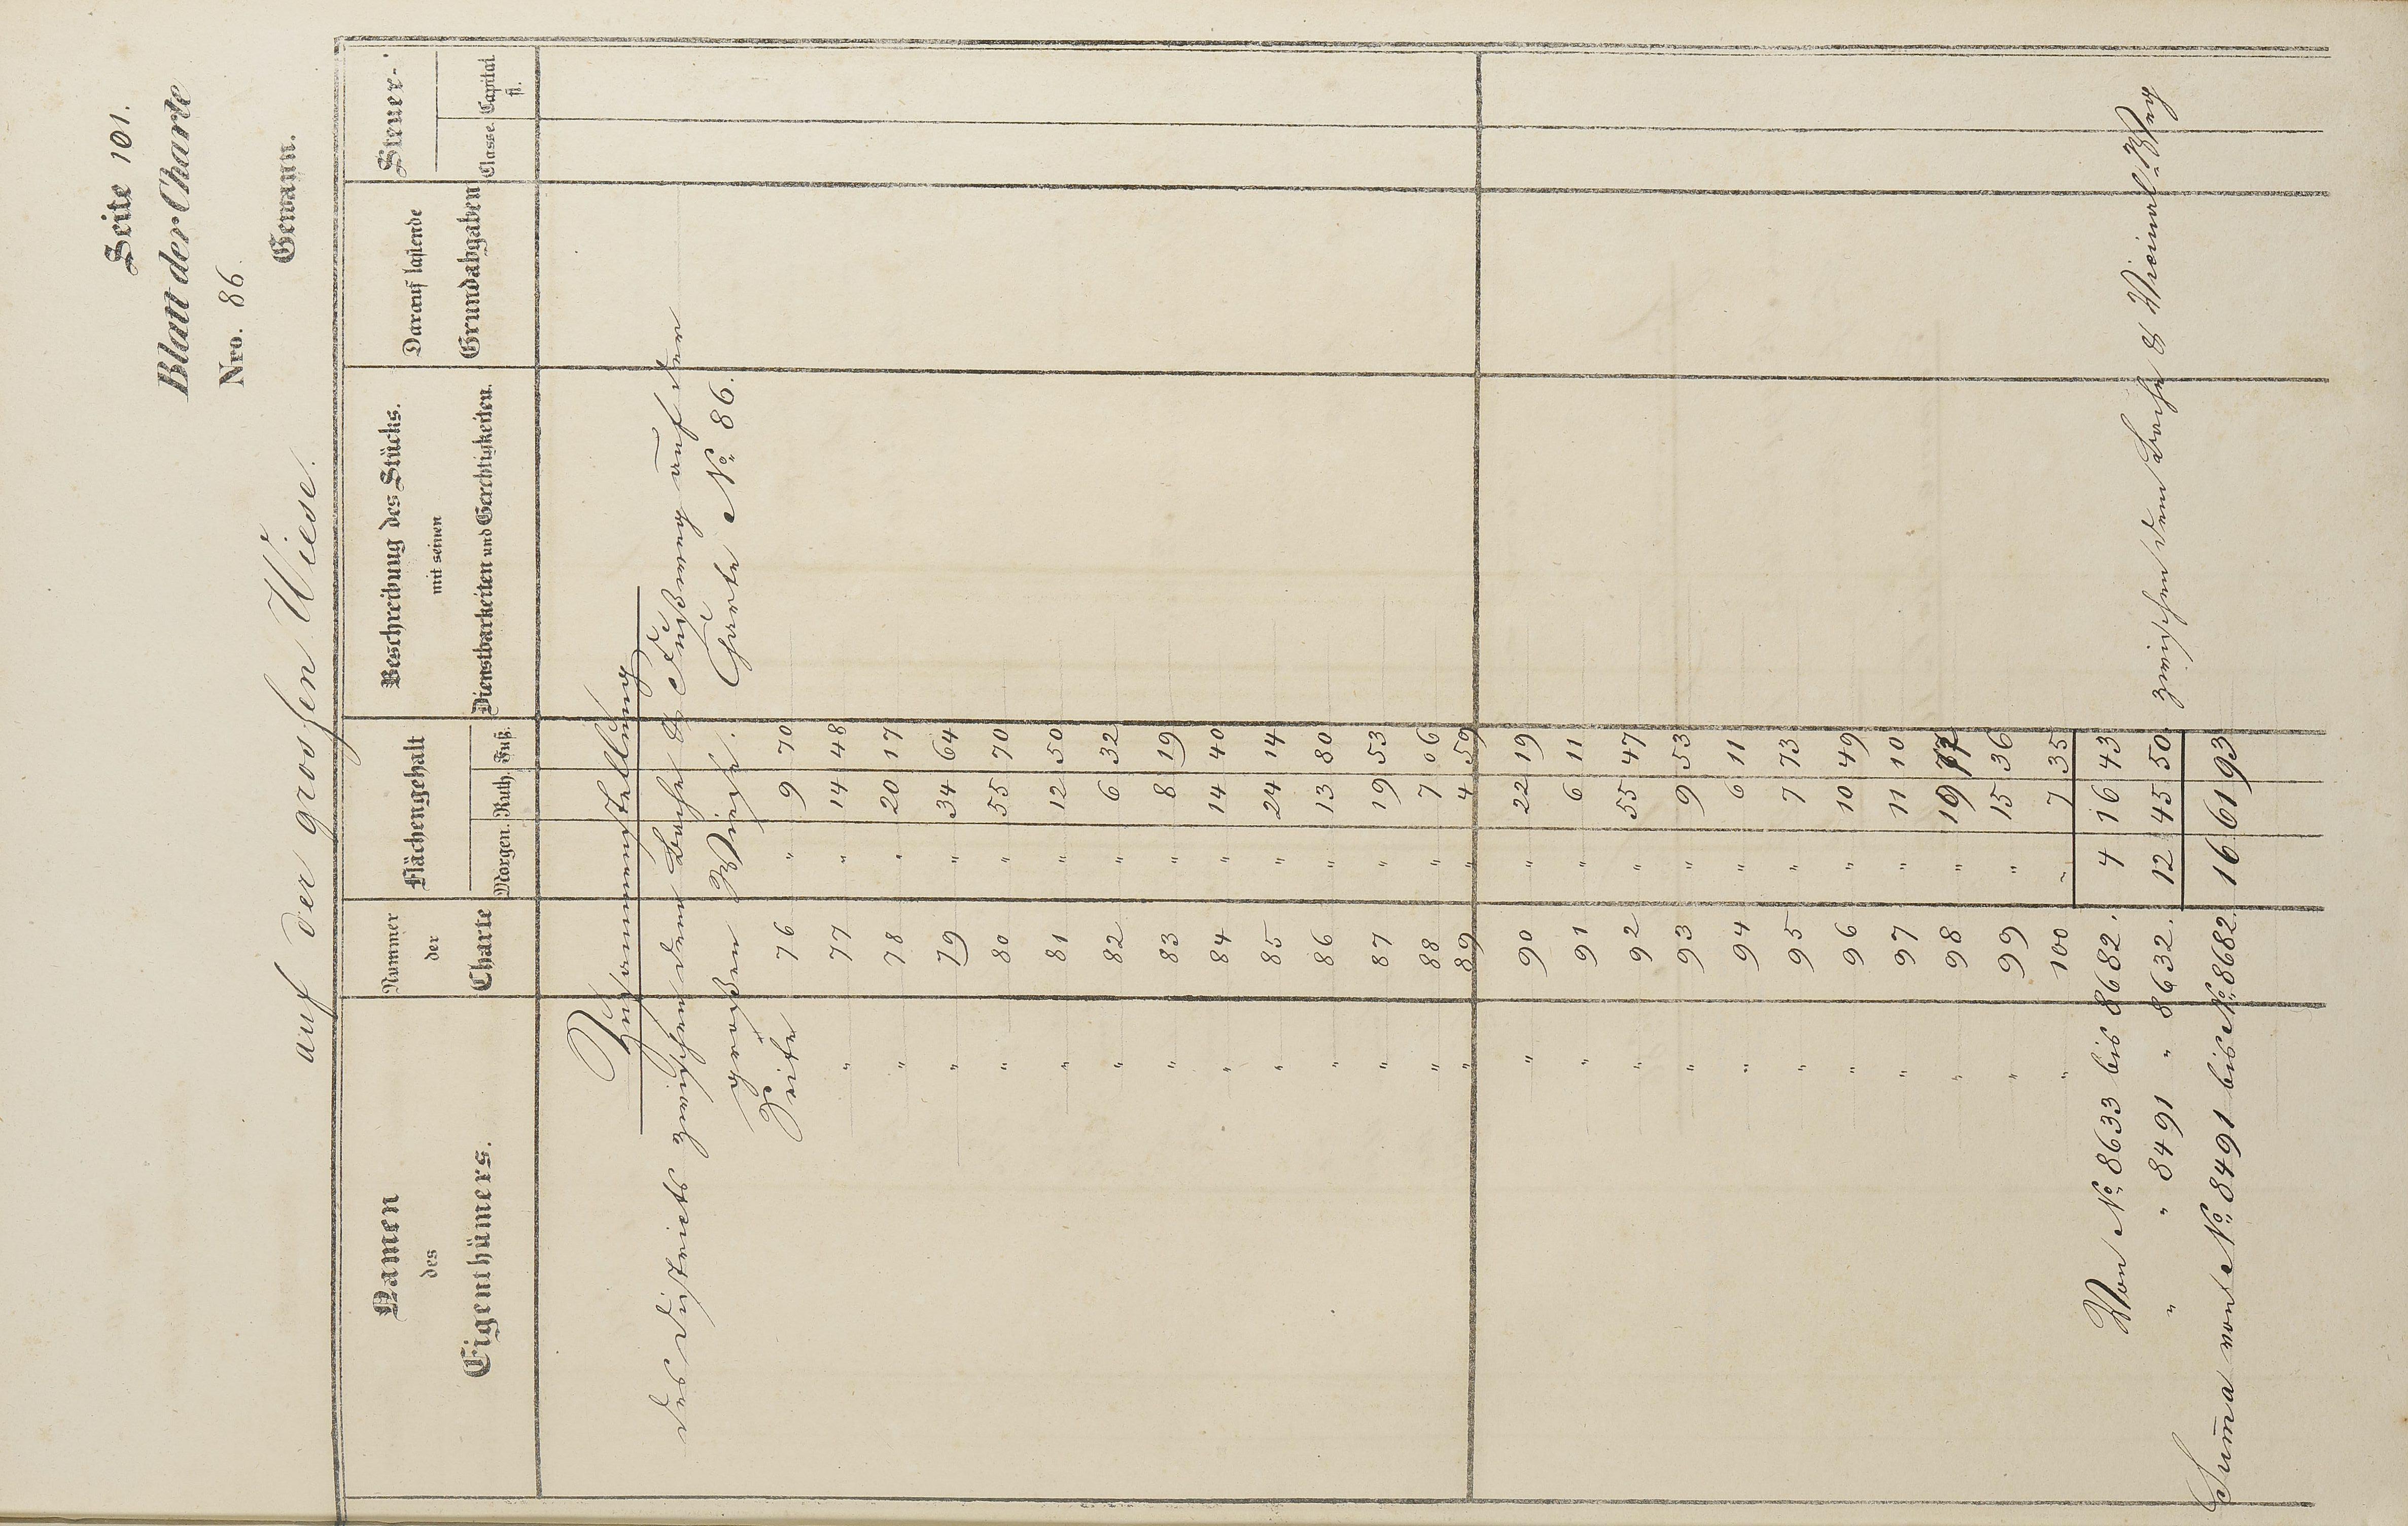 Seite 101.
Blatt der Charte
Nro. 86.
auf der groosen Wiese. Gewann.
Namen des Eigenthümers.
Nummer der Charte
Flächengehalt
Morgen. Ruth. Fuß.
Beschreibung des Stücks.
mit seinen
Dienstbarkeiten und Gerechtigkeiten.
Darauf lastende
Grundabgaben
Steuer-
Classe. Capital fl.
Zusammenstellung
des Districts zwischen dem Bache & Fußweg auf der
großen Wiese. Charte No. 86.
Seite 76 " 9 70
" 77 " 14 48
" 78 " 20 17
" 79 " 34 64
" 80 " 55 70
" 81 " 12 50
" 82 " 6 32
" 83 " 8 19
" 84 " 14 40
" 85 " 24 14
" 86 " 13 80
" 87 " 19 53
" 88 " 7 06
" 89 " 4 59
" 90 " 22 19
" 91 " 6 11
" 92 " 55 47
" 93 " 9 53
" 94 " 6 11
" 95 " 7 73
" 96 " 10 49
" 97 " 11 10
" 98 " 19
" 99 " 15 36
" 100 " 7 35
Von No. 8633 bis 8682. 4 16 43
" " 8491 " 8632. 12 45 50 zwischen dem Bache & Vicinal-Weg
Summa von No. 8491 bis No. 8682. 16 61 93